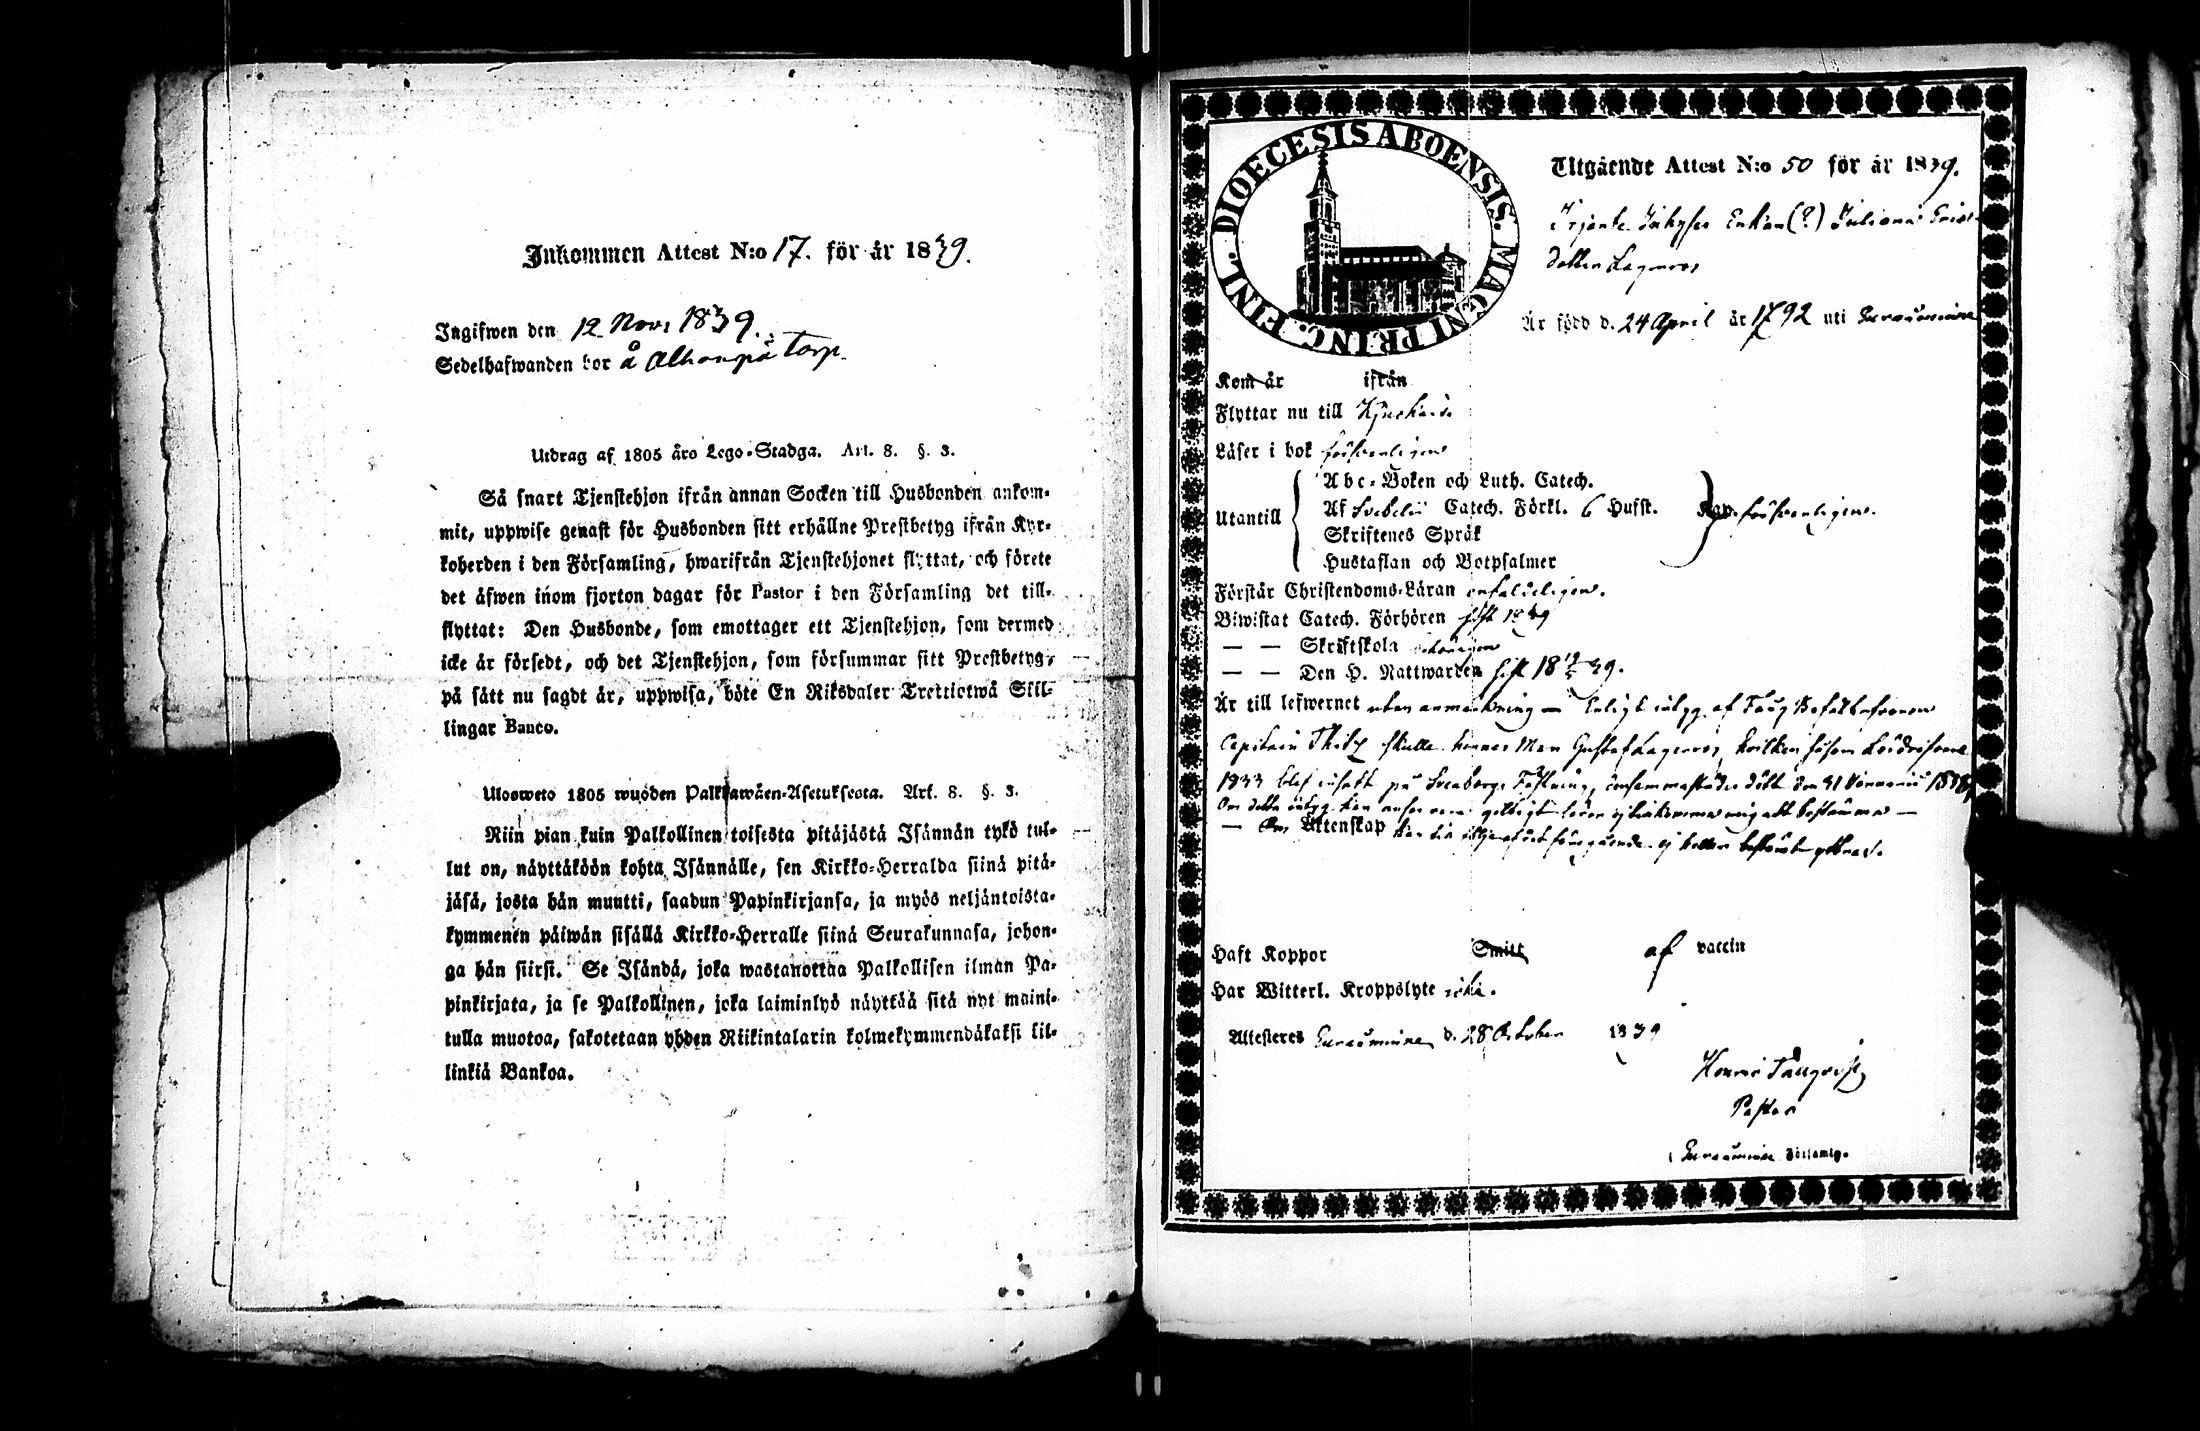 Inkommen Attest N:o 17. för år 1839.
Ingifwen den 12 Nov. 1839.
Sedelhafwanden bor å Alhonpä torp
Utdrag af 1805 års Lego-Stadga. Art. 8. §. 3.
Så snart Tjenstehjon ifrån annan Socken till Husbonden ankom-
mit, uppwise genast för Husbonden sitt erhållne Prestbetyg ifrån Kyr-
koherden i den Församling, hwarifrån Tjenstehjonet flyttat, och förete
det äfwen inom fjorton dagar för Pastor i den Församling det till-
flyttat: Den Husbonde, som emottager ett Tjenstehjon, som dermed
icke är försedt, och det Tjenstehjon, som försummar sitt Prestbetyg,
på sätt nu sagdt är, uppwisa, böte En Riksdaler Trettiotwå Skil-
lingar Banco.
Ulosweto 1805 wuoden Palkkawäen-Asetuksesta. Art. 8. §. 3.
Niin pian kuin Palkollinen toisesta pitäjästä Isännän tykö tul-
lut on, näyttäköön kohta Isännälle, sen Kirkko-Herralda siinä pitä-
jäsä, josta hän muutti, saadun Papinkirjansa, ja myös neljäntoista-
kymmenen päiwän sisällä Kirkko-Herralle siinä Seurakunnasa, johon-
ga hän siirsi. Se Isändä, joka wastanottaa Palkollisen ilman Pa-
pinkirjata, ja se Palkollinen, joka laiminlyö näyttää sitä nyt maini-
tulla muotoa, sakotetaan yhden Riikintalarin kolmekymmendäkaksi kil-
linkiä Bankoa.
DIOECESIS ABOENSIS. MAGNI PRINC. FINL.
Utgående Attest N:o 50 för år 1839.
Enkan (?) Juliana
Lagerros
Är född d. 24 April år 1792 uti Euraåminne
Kom år ifrån
Flyttar nu till
Läser i bok försvarligen
Utantill
Abc-Boken och Luth. Catech.
Af Svebelii Catech. Förkl. 6 Hufst. Kap. försvarligen.
Skriftenes Språk
Hustaflan och Botpsalmer
Förstår Christendoms-Läran enfaldeligen.
Biwistat Catech. Förhören sist 1839
— — Skriftskola
— — Den H. Nattwarden sist 18 39.
Är till lefwernet utan anmärkning — Enligt intyg af Fång Befälhafvaren
Capitain skulle hennes Man Gustaf Lagerros, hvilken såsom
1833 blef insatt på Sveaborgs Fästning, dödt den 31 Januarii
Om detta intyg kan anses vara giltigt lärer ej tillkomma mig att bestämma —
— Om Äktenskap kan till följe af det föregående ej heller bestämdt yttras.
Haft Koppor Smitt af vaccin
Har Witterl. Kroppslyte icke.
Attesteras Euraåminne d. 28 October 1839
Pastor
i Euraåminne Församlg.